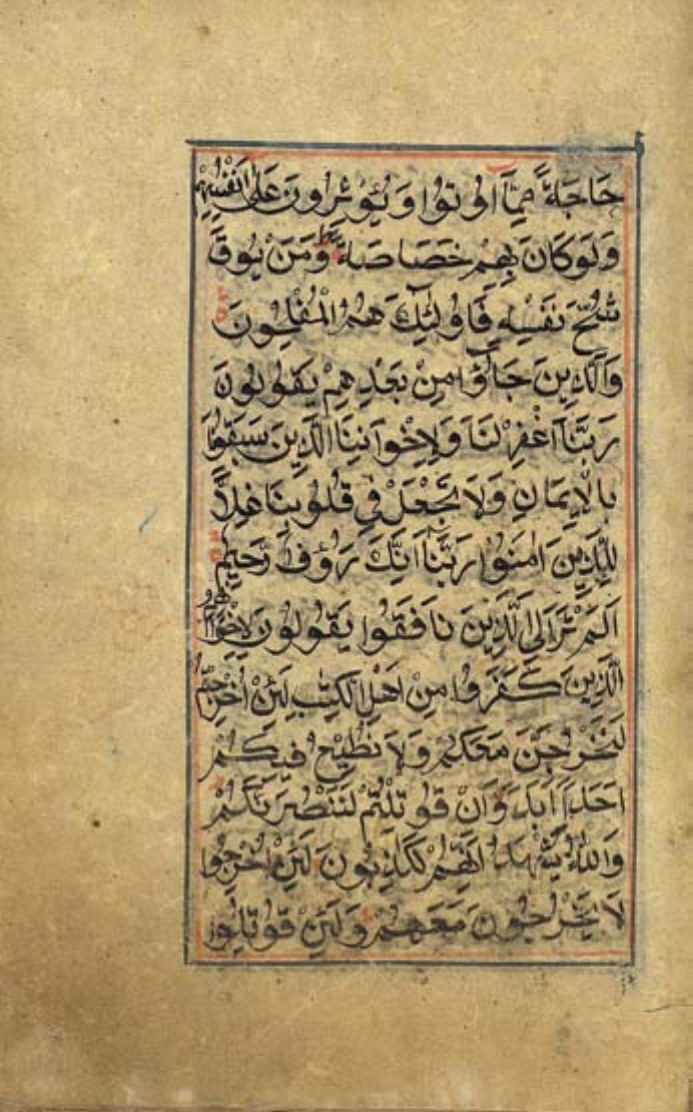 حَاجَةً مِمَّآ اُوتُوا وَيُؤْثِرُونَ عَلىٰٓ اَنْفُسِهِمْ
وَلَوْكَانَ بِهِمْ خَصَاصَةٌ وَمَنْ يُوقَ
شُحَّ نَفْسِهِ فَاُولٰٓئِكَ هُمُ الْمُفْلِحُونَ
وَالَّذِينَ جَآؤُا مِنْ بَعْدِهِمْ يَقُولُونَ
رَبَّنَا اغْفِرْ لَنَا وَلِاِخْوَانِنَا الَّذِينَ سَبَقُونَا
بِالْاِيمَانِ وَلَا تَجْعَلْ فِي قُلُوبِنَا غِلًّا
لِلَّذِينَ اٰمَنُوا رَبَّنَا اِنَّكَ رَؤُفٌ رَحِيمٌ
اَلَمْ تَرَ اِلَى الَّذِينَ نَافَقُوا يَقُولُونَ لِاِخْوَانِهِمُ
الَّذِينَ كَفَرُوا مِنْ اَهْلِ الْكِتٰبِ لَئِنْ اُخْرِجْتُمْ
لَنَخْرُجَنَّ مَعَكُمْ وَلَا نُطِيعُ فِيكُمْ
اَحَدًا اَبَدًا وَاِنْ قُوتِلْتُمْ لَنَنْصُرَنَّكُمْ
وَاللّٰهُ يَشْهَدُ اِنَّهُمْ لَكٰذِبُونَ لَئِنْ اُخْرِجُوا
لَا يَخْرُجُونَ مَعَهُمْ وَلَئِنْ قُوتِلُوا